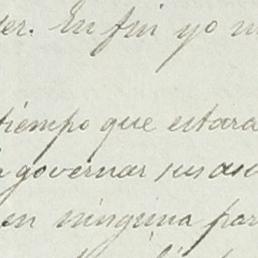 er. En fin yo n
tiempo que estara
a governar sus as
en ninguna par